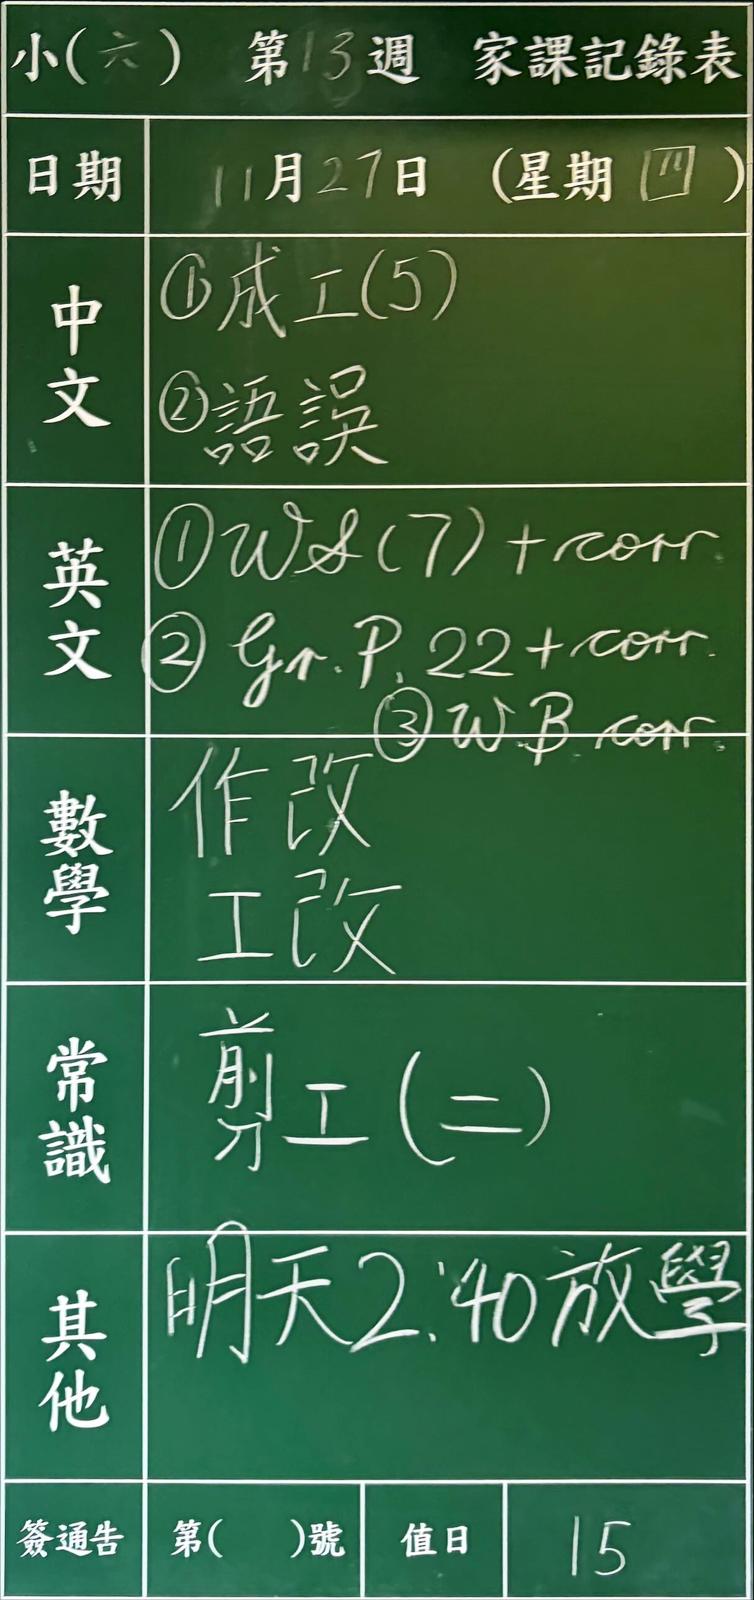 小(六) 第13週 家課記錄表
日期 11月27日 (星期四)
中文
①成工(5)
②語誤
英文
①WS(7)+corr.
②Gr.P.22+corr.
③W.B corr.
數學
作改
工改
常識
剪工(二)
其他
明天2:40放學
簽通告 第( )號 值日 15